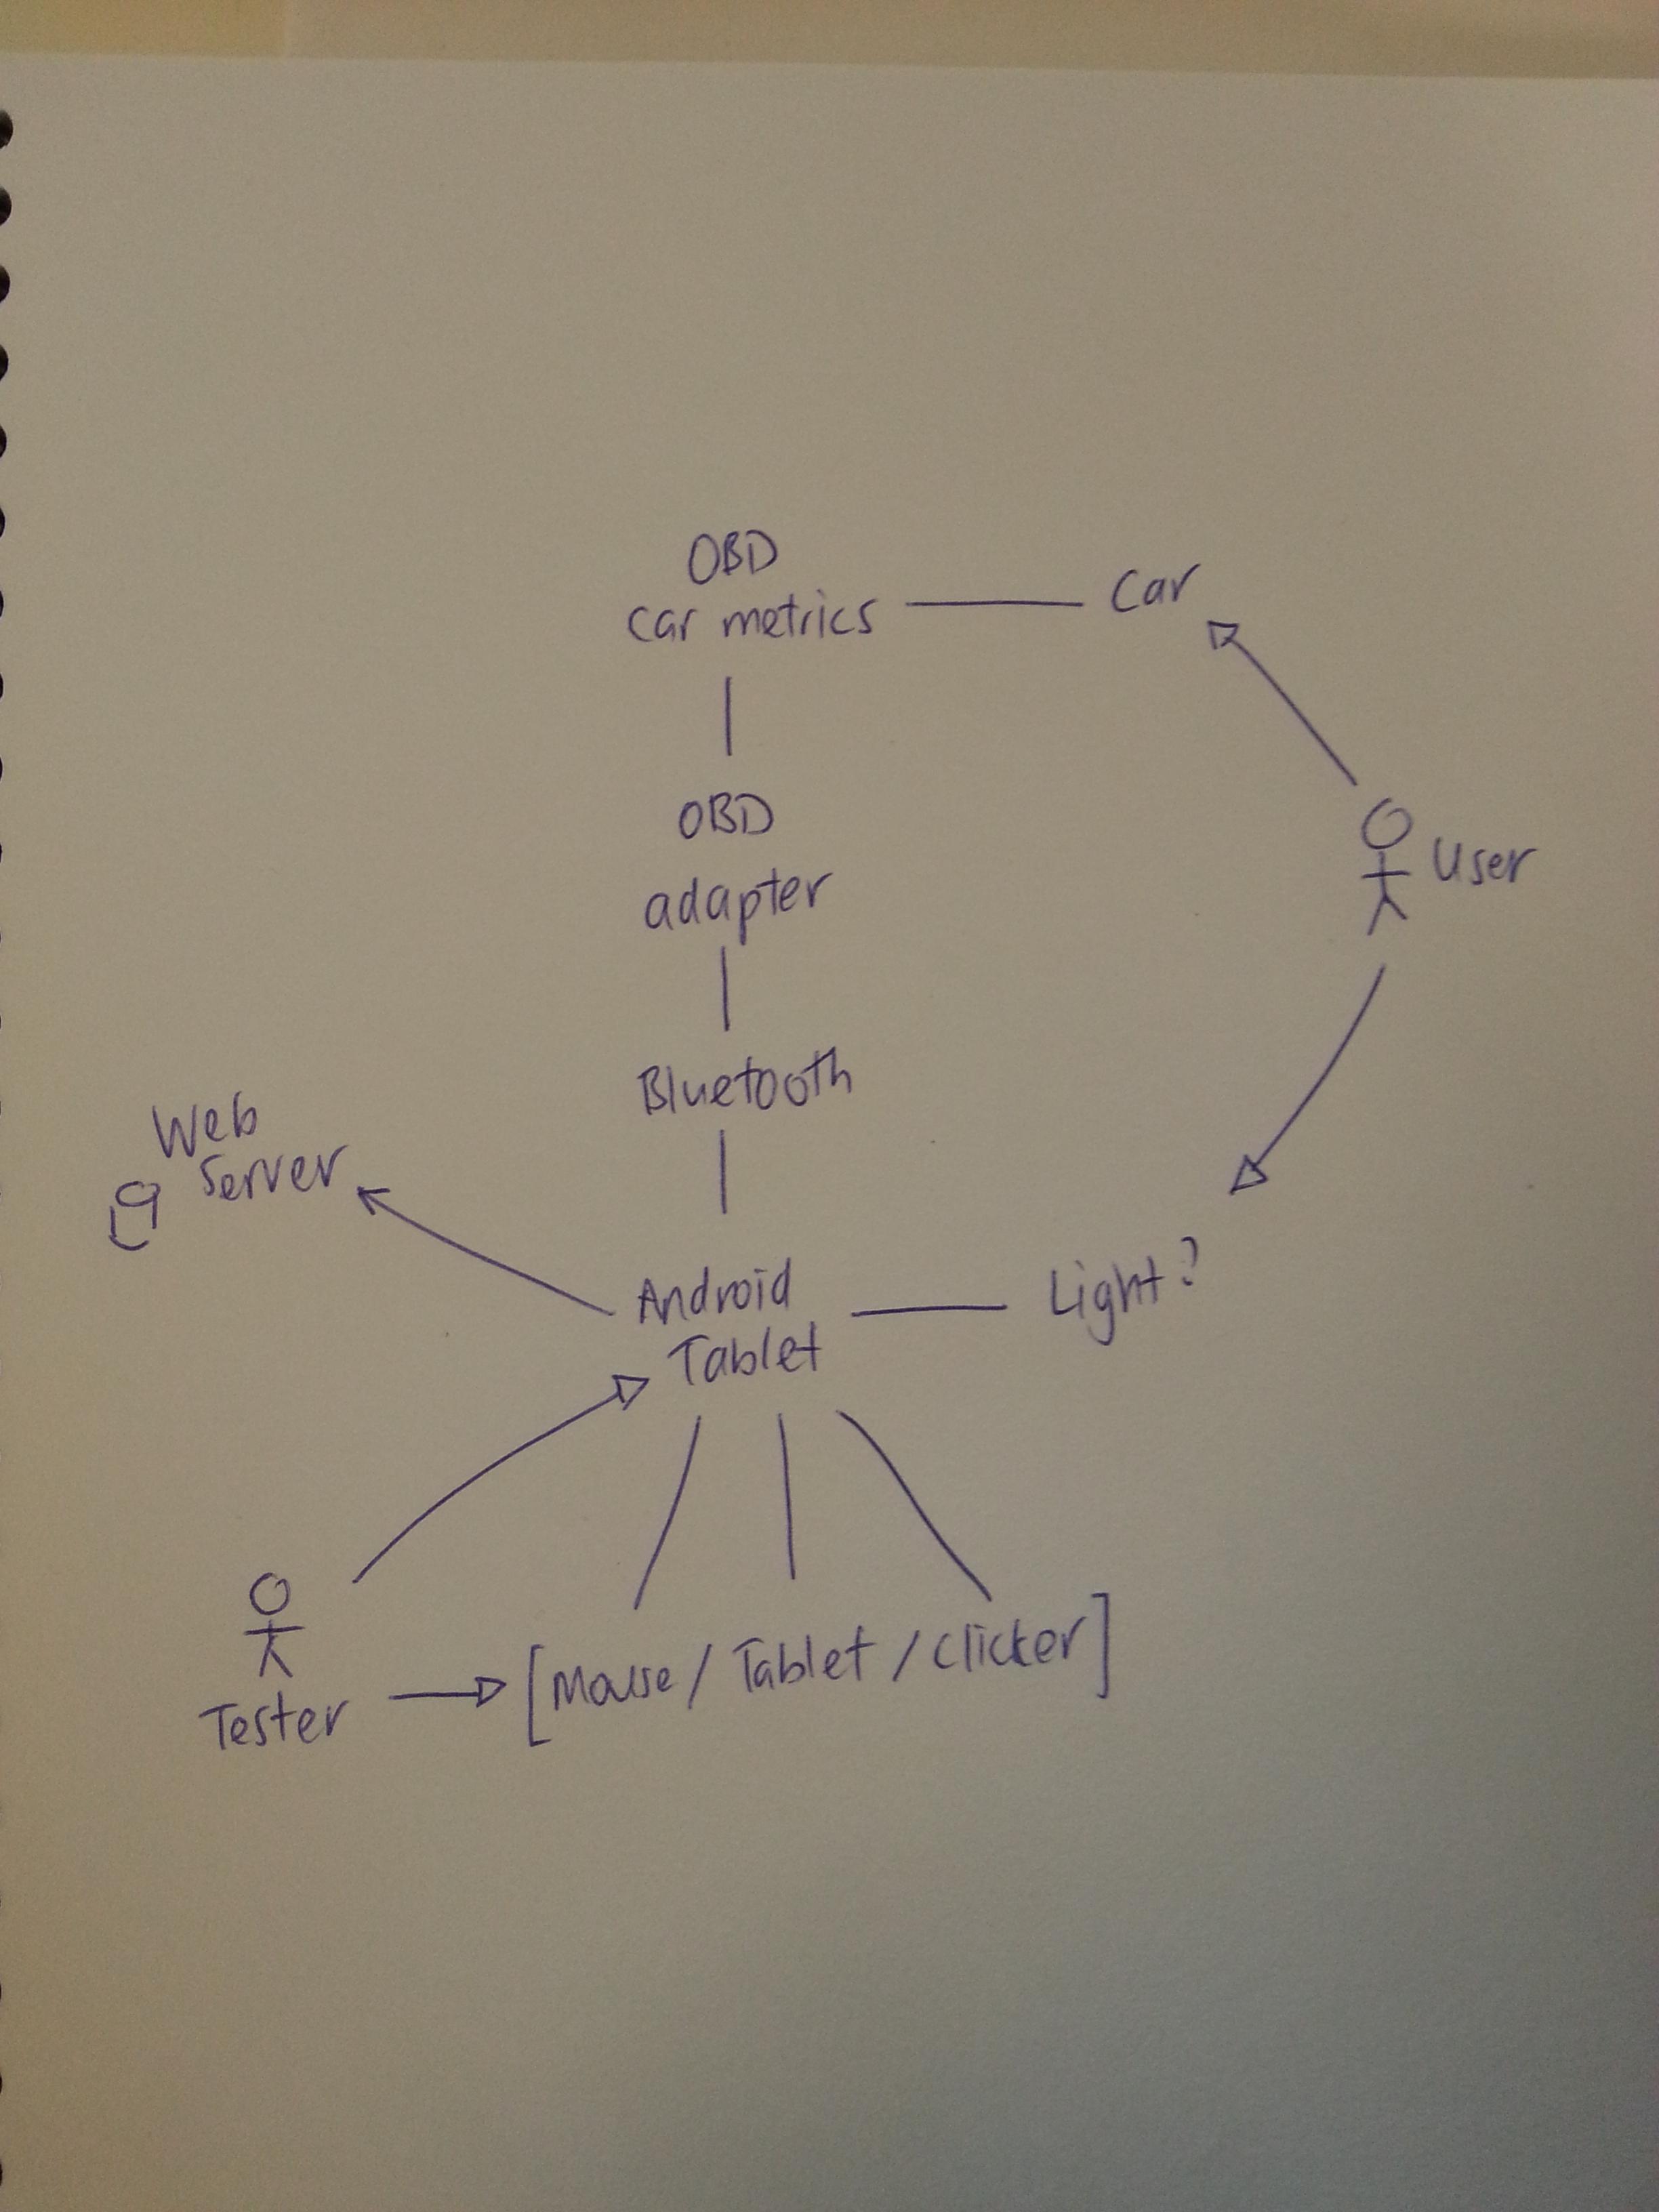 OBD
car metrics
Car
OBD
adapter
User
Bluetooth
Web
Server
Android
Tablet
Light?
Tester
[Mouse/Tablet/clicker]